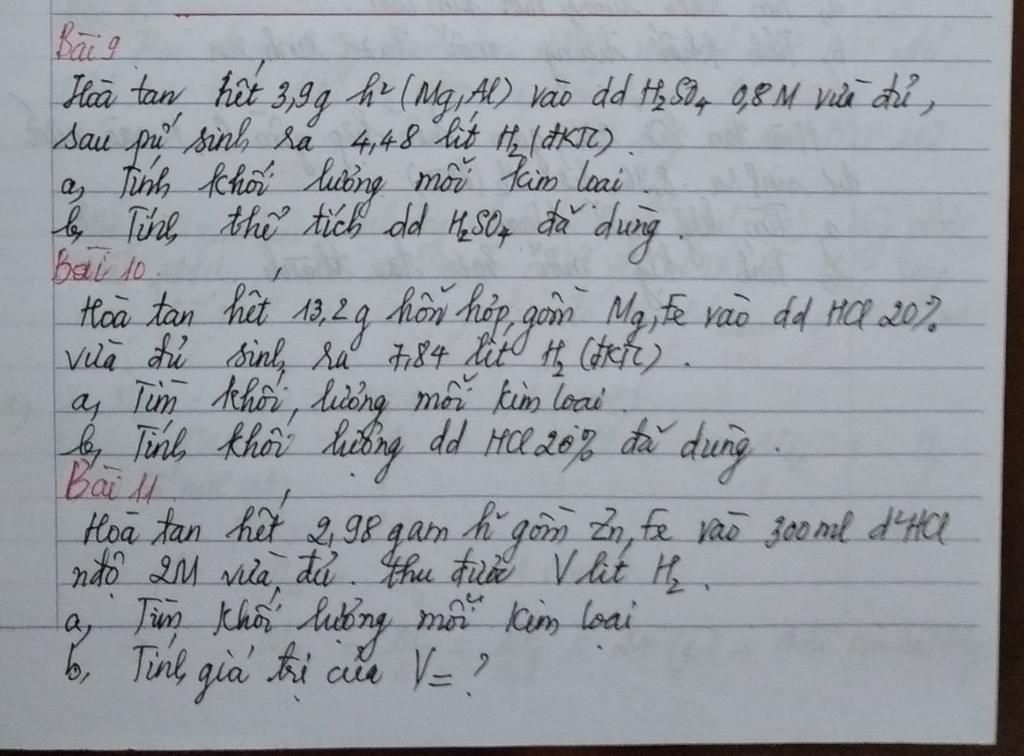 Bài 9
Hoà tan hết 3,9g h² (Mg, Al) vào dd H₂SO₄ 0,8M vừa đủ,
sau pứ sinh ra 4,48 lít H₂ (đktc).
a, Tính khối lượng mỗi kim loại.
b, Tính thể tích dd H₂SO₄ đã dùng.
Bài 10
Hoà tan hết 13,2g hỗn hợp gồm Mg, Fe vào dd HCl 20%
vừa đủ sinh ra 7,84 lít H₂ (đktc).
a, Tìm khối lượng mỗi kim loại.
b, Tính khối lượng dd HCl 20% đã dùng.
Bài 11
Hoà tan hết 2,98 gam h² gồm Zn, Fe vào 300ml d² HCl
nđộ 2M vừa đủ. thu được V lít H₂.
a, Tìm khối lượng mỗi kim loại
b, Tính giá trị của V = ?